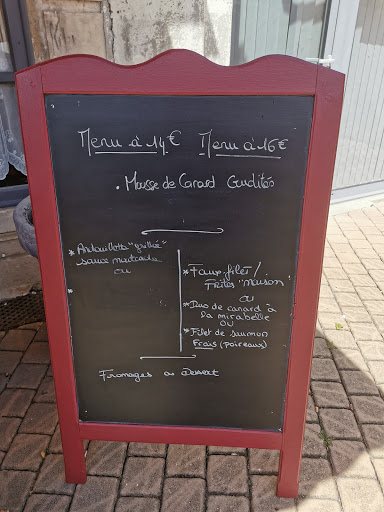 Menu à 14€ Menu à 16€
. Mousse de Canard Crudités
* Andouillette "grillé"
sauce moutarde
ou
*
* Faux-filet /
Frites "maison
ou
* Duo de canard à
la mirabelle
OU
* Filet de saumon
Frais (poireaux)
Fromages ou Dessert